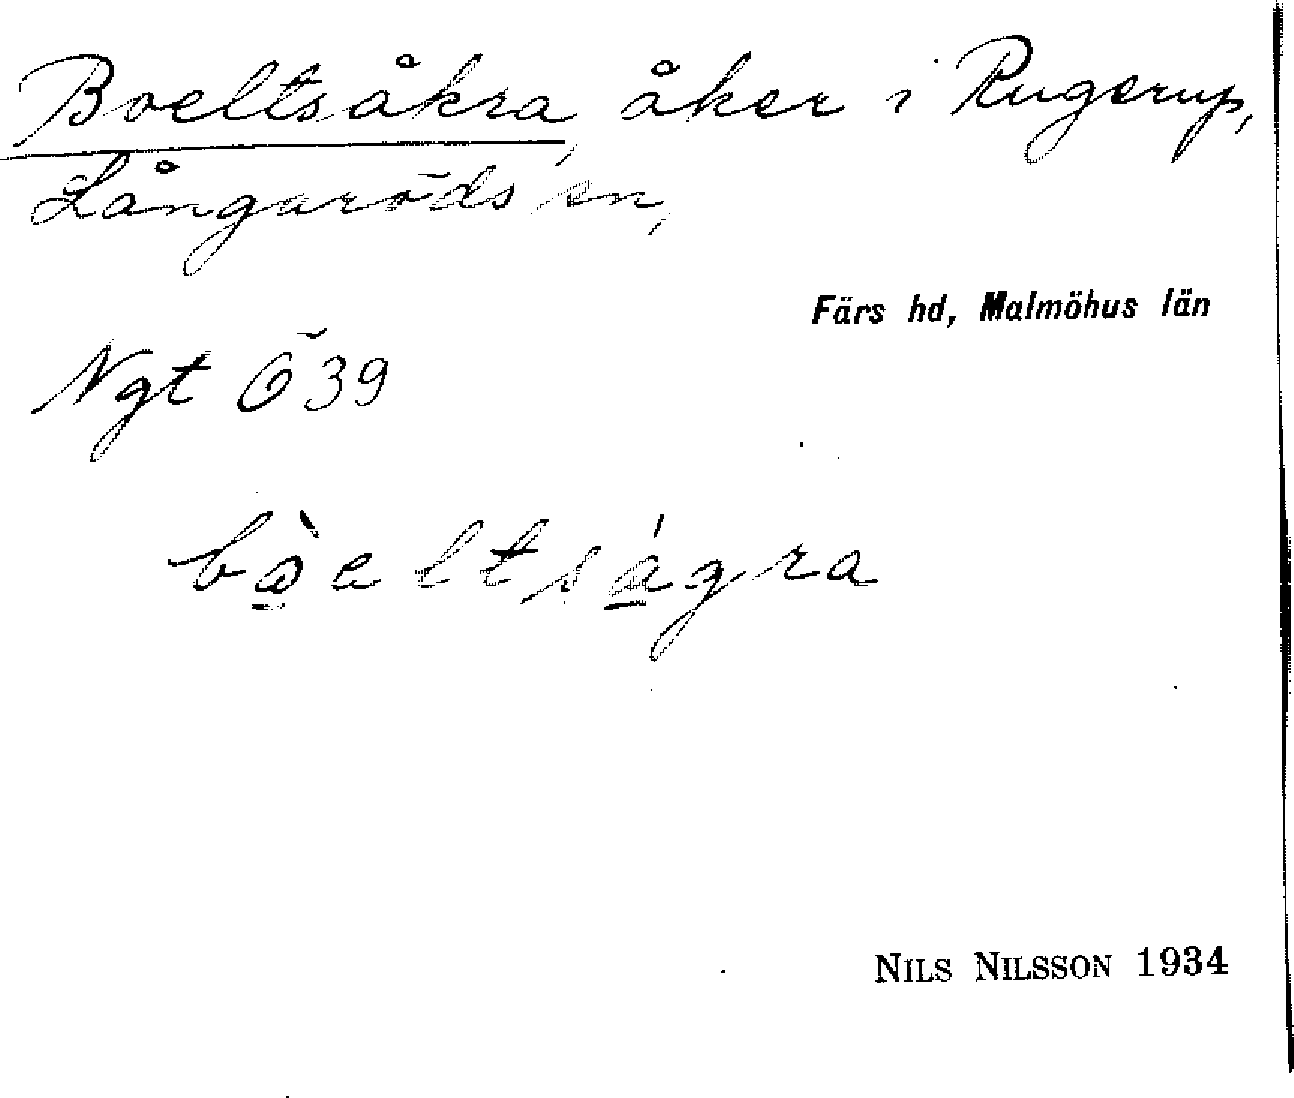 Boeltsåkra, åker i Rugerup,
Långaröds sn,
Färs hd, Malmöhus län
Ngt Ö 39
bò̱eltsá̱gra
NILS NILSSON 1934